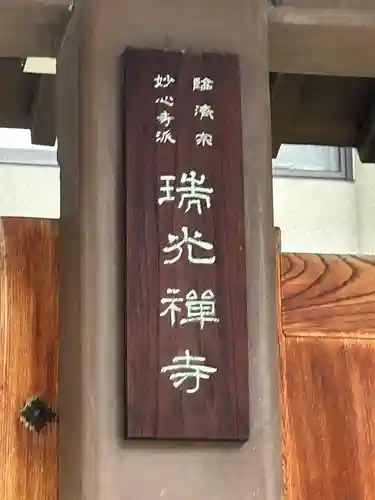 臨濟宗
妙心寺派
瑞光禪寺